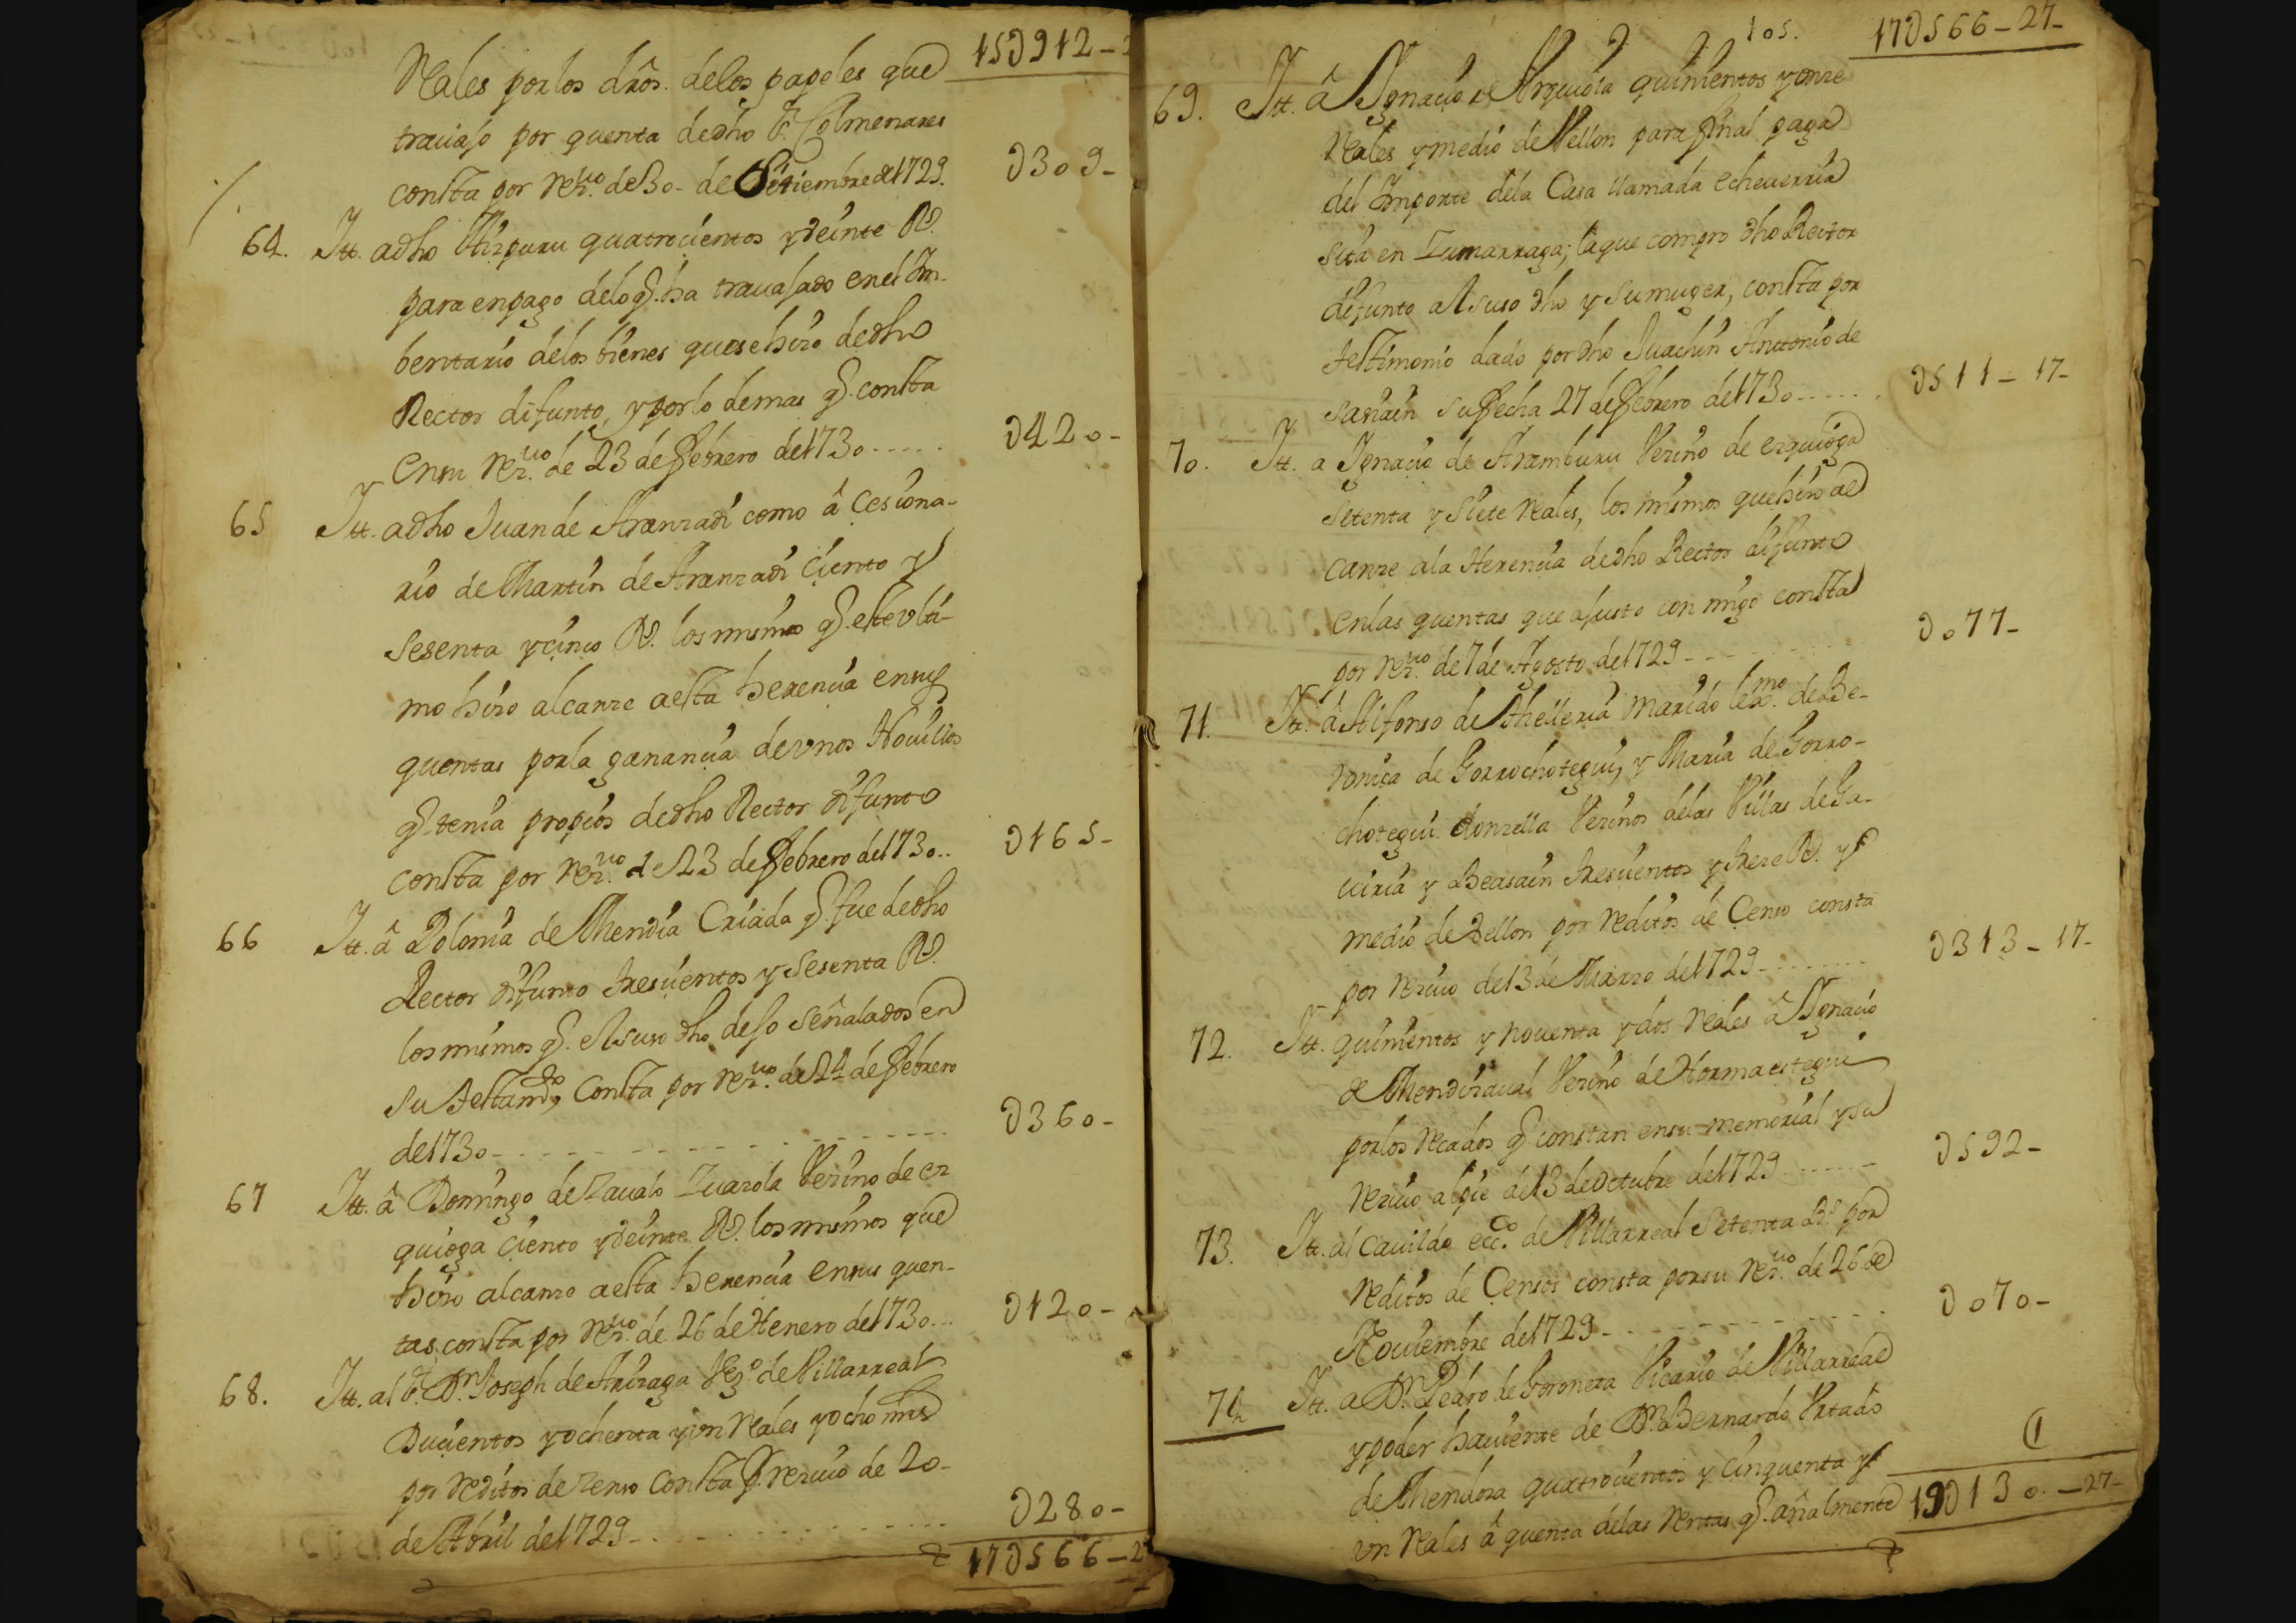 15∂912-2
Reales por los dros. delos papeles que
trauajo por quenta dedho S.r Colmenares
consta por Rez.uo de 30- de Setiembre de 1729. ∂309-
64. Itt. adho Aizpuru quatrocientos y veinte Rs.
para en pago delo q. ha trauajado en el Im-
bentario delos vienes que se hizo dedho
Rector difunto, y por lo demas q. consta
en su Rez.uo de 23 de Febrero de 1730...... ∂420-
65 Itt. adho Juan de Aranzadi como â Cesiona-
rio de Martin de Aranzadi Ciento y
Sesenta y cinco Rs. los mismos q. este Vlti-
mo hizo alcanze a esta herencia en sus
quentas por la ganancia de vnos Nouillos
q. tenia propios dedho Rector difunto
consta por Rez.uo de 23 de Febrero de 1730.. ∂165-
66 Itt. â Polonia de Mendia Criada q. fue dedho
Rector difunto trescientos y Sesenta Rs.
los mismos q. el suso dho dejo señalados en
su testam.to, Consta por Rez.uo de 24 de Febrero
de 1730------------ ∂360-
67 Itt. â Domingo de Zaualo Zuazola Vezino de ez
quioga ciento y veinte Rs. los mismos que
hizo alcanzo a esta herencia en sus quen-
tas, consta por Rez.uo de 26 de Henero de 1730... ∂120-
68. Itt. al S.r D.n Joseph de Arizaga Vez.o de Villarreal
Ducientos y ochenta y vn Reales y ocho mrs
por reditos de zenso Consta p. reziuo de 20-
de Abril de 1729----------- ∂280-
17∂566-2
105. 17∂566-27-
69. Itt. â Ygnacio de Arguiola quinientos y onze
Reales y medio de Vellon para final paga
del Importe dela Casa llamada Echeuerria
sita en Zumarraga; la que compro dho Rector
difunto al suso dho y su muger, consta por
testimonio dado por dho Juachin Antonio de
Sariain su fecha 27 de Febrero de 1730----- ∂511-17-
70. Itt. a Ignacio de Aramburu Vezino de ezquioga
Setenta y Siete Reales, los mismos que hizo al
canze ala Herencia dedho Rector difunto
en las quentas que ajusto con migo consta
por Rez.uo de 7 de Agosto de 1729-------- ∂077-
71. Itt. â Alfonso de Atelleria marido lex.mo de Be-
ronica de Gorrochotegui, y Maria de Gorro-
chotegui. donzella Vezinos delas Villas de Ga-
uiria y Beasain trescientos y treze Rs. y
medio de Vellon por reditos de Censo consta
por reziuo de 13 de Marzo de 1729-------- ∂313-17-
72. Itt. quinientos y nouenta y dos reales â Ygnacio
de Mendizaual Vezino de Hormaestegui
por los recados q. constan en su memorial y su
reziuo al pie de 13 de octubre de 1729.------ ∂592-
73. Itt. al Cauildo ecc.co de Villarreal Setenta Rs. por
reditos de Censos consta por su rez.uo de 26 de
Nouiembre de 1729----------- ∂070-
74 Itt. a D.n Pedro de Goroneta Vicario de Villarreal
y poder hauiente de D.n Bernardo Vrtado
de Mendoza quatrocientos y cinquenta y
vn Reales â quenta delas rentas q. añalmente
19∂130.-27-